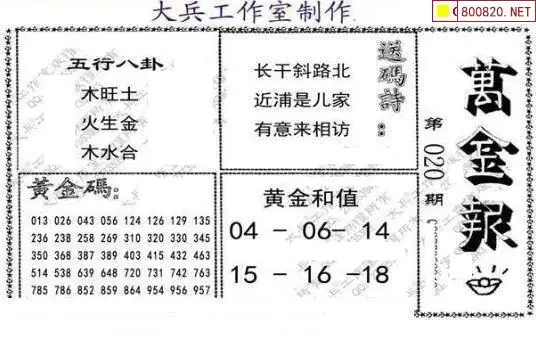 大兵工作室制作
800820.NET
五行八卦
木旺土
火生金
木水合
送碼詩：
长干斜路北
近浦是儿家
有意来相访
黄金碼：
013 026 043 056 124 126 129 135
236 238 258 269 310 320 330 345
350 368 387 389 403 415 432 463
514 538 639 648 720 731 742 763
785 786 852 859 864 954 956 957
黄金和值
04 - 06- 14
15 - 16 -18
萬金報
第020期